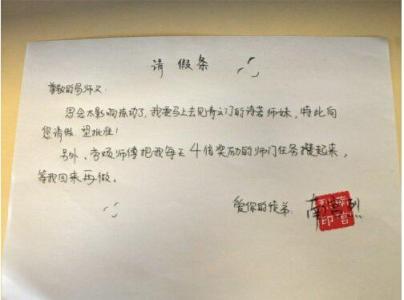 请假条
尊敬的易师父:
因会太影响炼功了,我要马上去见青云门的诗若师妹,特此向
您请假 望批准!
另外,麻烦师傅把我每天4倍奖励的师门任务攒起来,
等我回来再做。
爱你的徒弟:南宫烈
南宫烈印